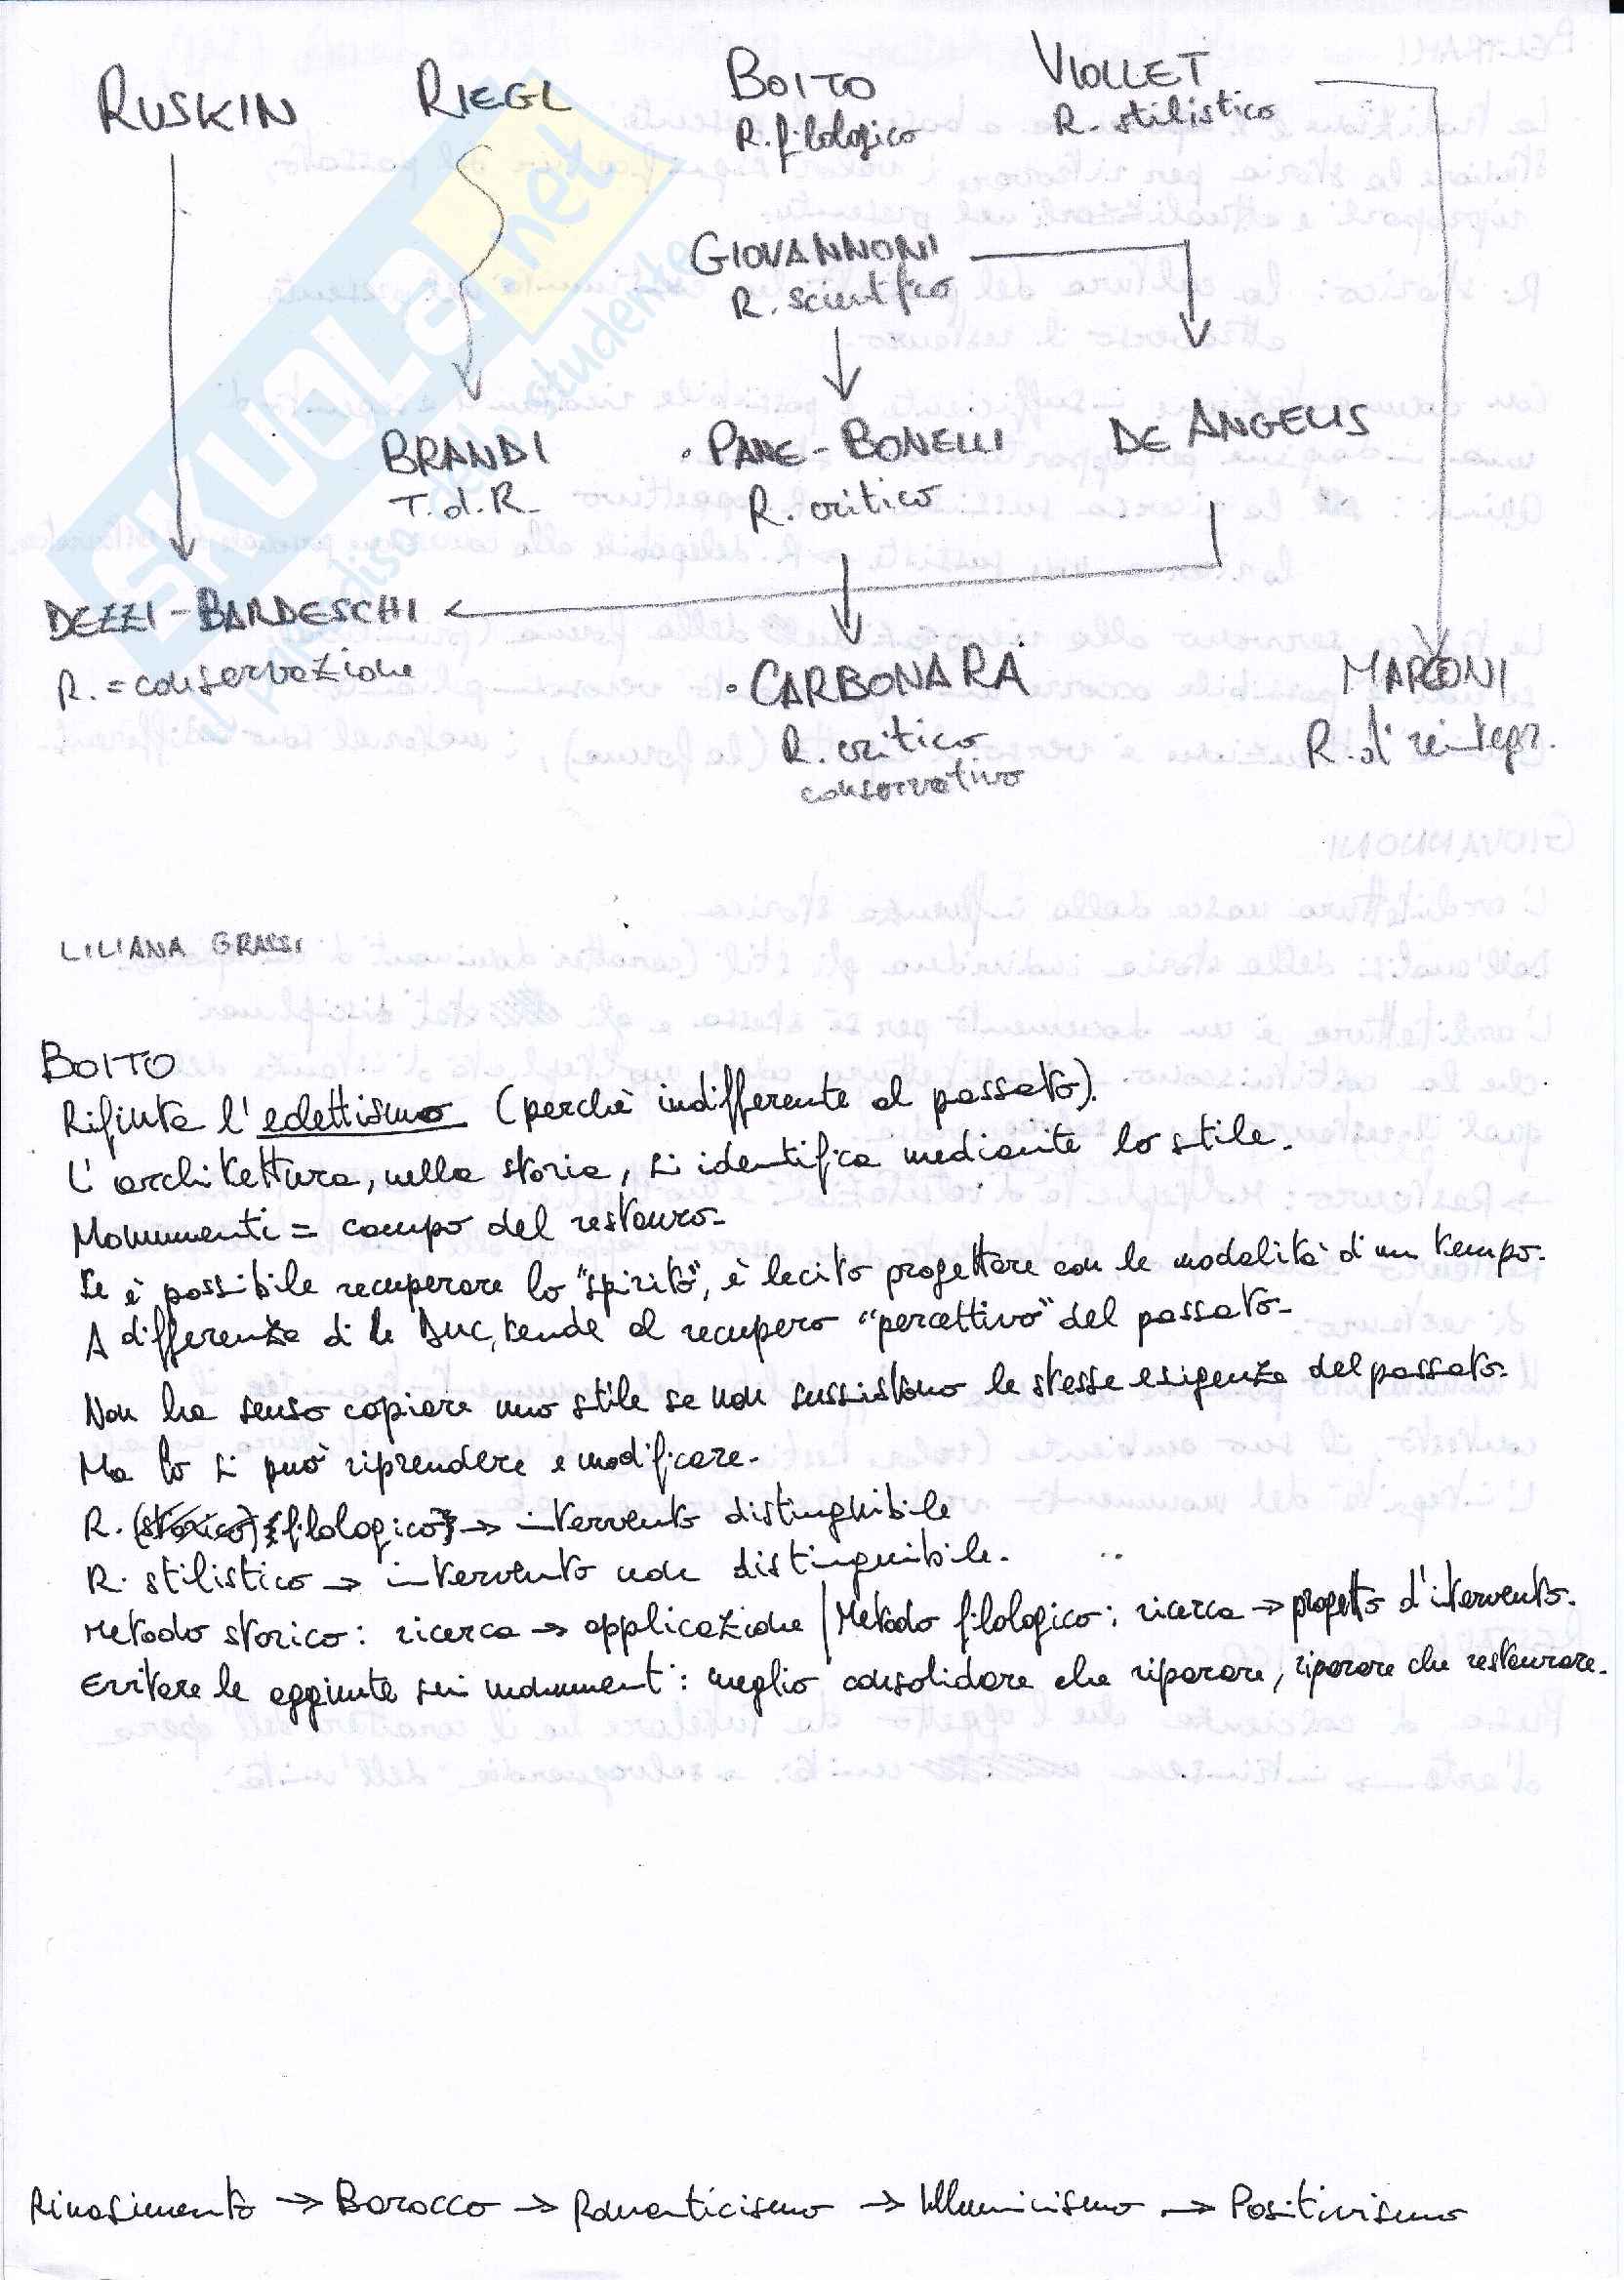 RUSKIN RIEGL BOITO VIOLLET
R. filologico R. stilistico
GIOVANNONI
R. scientifico
BRANDI PANE-BONELLI DE ANGELIS
T.d.R. R. critico
DEZZI-BARDESCHI
R. = conservazione
CARBONARA MARCONI
R. critico R. di reintegr.
conservativo
LILIANA GRASSI
BOITO
Rifiuta l'eclettismo (perchè indifferente al passato).
L'architettura, nella storia, si identifica mediante lo stile.
Monumenti = campo del restauro.
Se è possibile recuperare lo "spirito", è lecito progettare con le modalità di un tempo.
A differenza di le Duc, tende al recupero "percettivo" del passato.
Non ha senso copiare uno stile se non sussistono le stesse esigenze del passato.
Ma lo si può riprendere e modificare.
R. (storico) {filologico} → intervento distinguibile
R. stilistico → intervento non distinguibile.
Metodo storico: ricerca → applicazione | Metodo filologico: ricerca → progetto d'intervento.
Evitare le aggiunte sui monumenti: meglio consolidare che riparare, riparare che restaurare.
Rinascimento → Barocco → Romanticismo → Illuminismo → Positivismo
SKUOLA.net
il paradiso dello studente